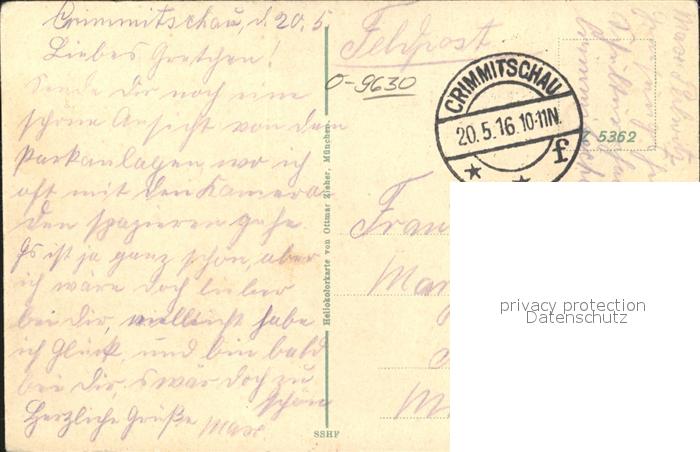 Crimmitschau, d. 20.5.
Liebes Gretchen!
Sende Dir noch eine
schöne Ansicht von den
Parkanlagen, wo ich
oft mit den Kamera
den spazieren gehe.
Es ist ja ganz schön, aber
ich wäre doch lieber
bei Dir, vielleicht habe
ich Glück, und bin bald
bei Dir, s wär doch zu
schön
Herzliche Grüße Max
Feldpost.
O-9630
CRIMMITSCHAU
20.5.16.10-11N.
f
5362
Heliokolorkarte von Ottmar Zieher, München.
SSHF
Frau
privacy protection
Datenschutz